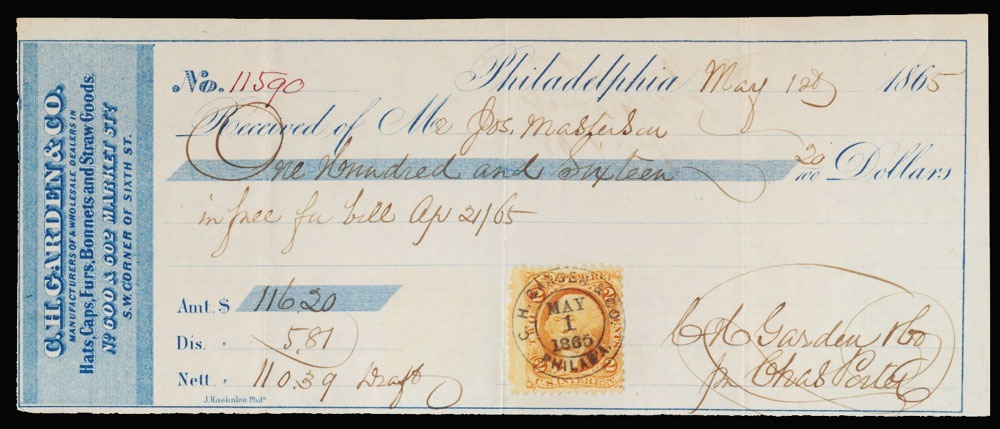 C.H. GARDEN & CO.
MANUFACTURERS OF & WHOLESALE DEALERS IN
Hats, Caps, Furs, Bonnets and Straw Goods,
No 600 & 602 MARKET ST.
S.W. CORNER OF SIXTH ST.
No. 11590
Philadelphia May 1st 1865
Received of Mr Jos. Masterson
One Hundred and Sixteen 20/100 Dollars
in full for bill Ap 21/65
Amt. $ 116.20
Dis. " 5.81
Nett. " 110.39 Draft
J. Haehnlen Phila
INT. REV.
C. H. GARDEN & CO.
MAY
1
1865
PHILADA.
U.S. INTER
C H Garden & Co
per Chas Porter